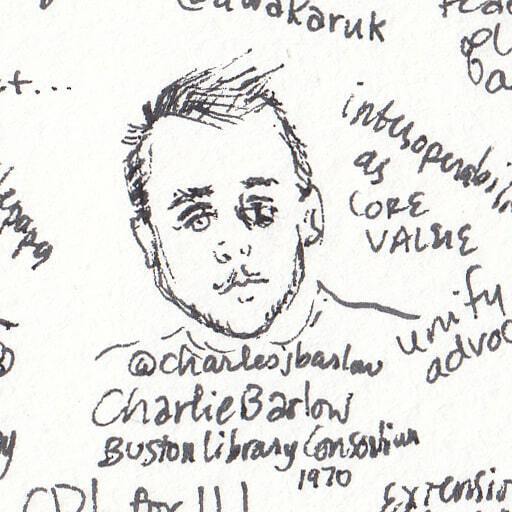 interoperabili
as
CORE
VALUE
unify
advoc
@charlesjbarlow
Charlie Barlow
Boston Library Consortium
1970
CDL for